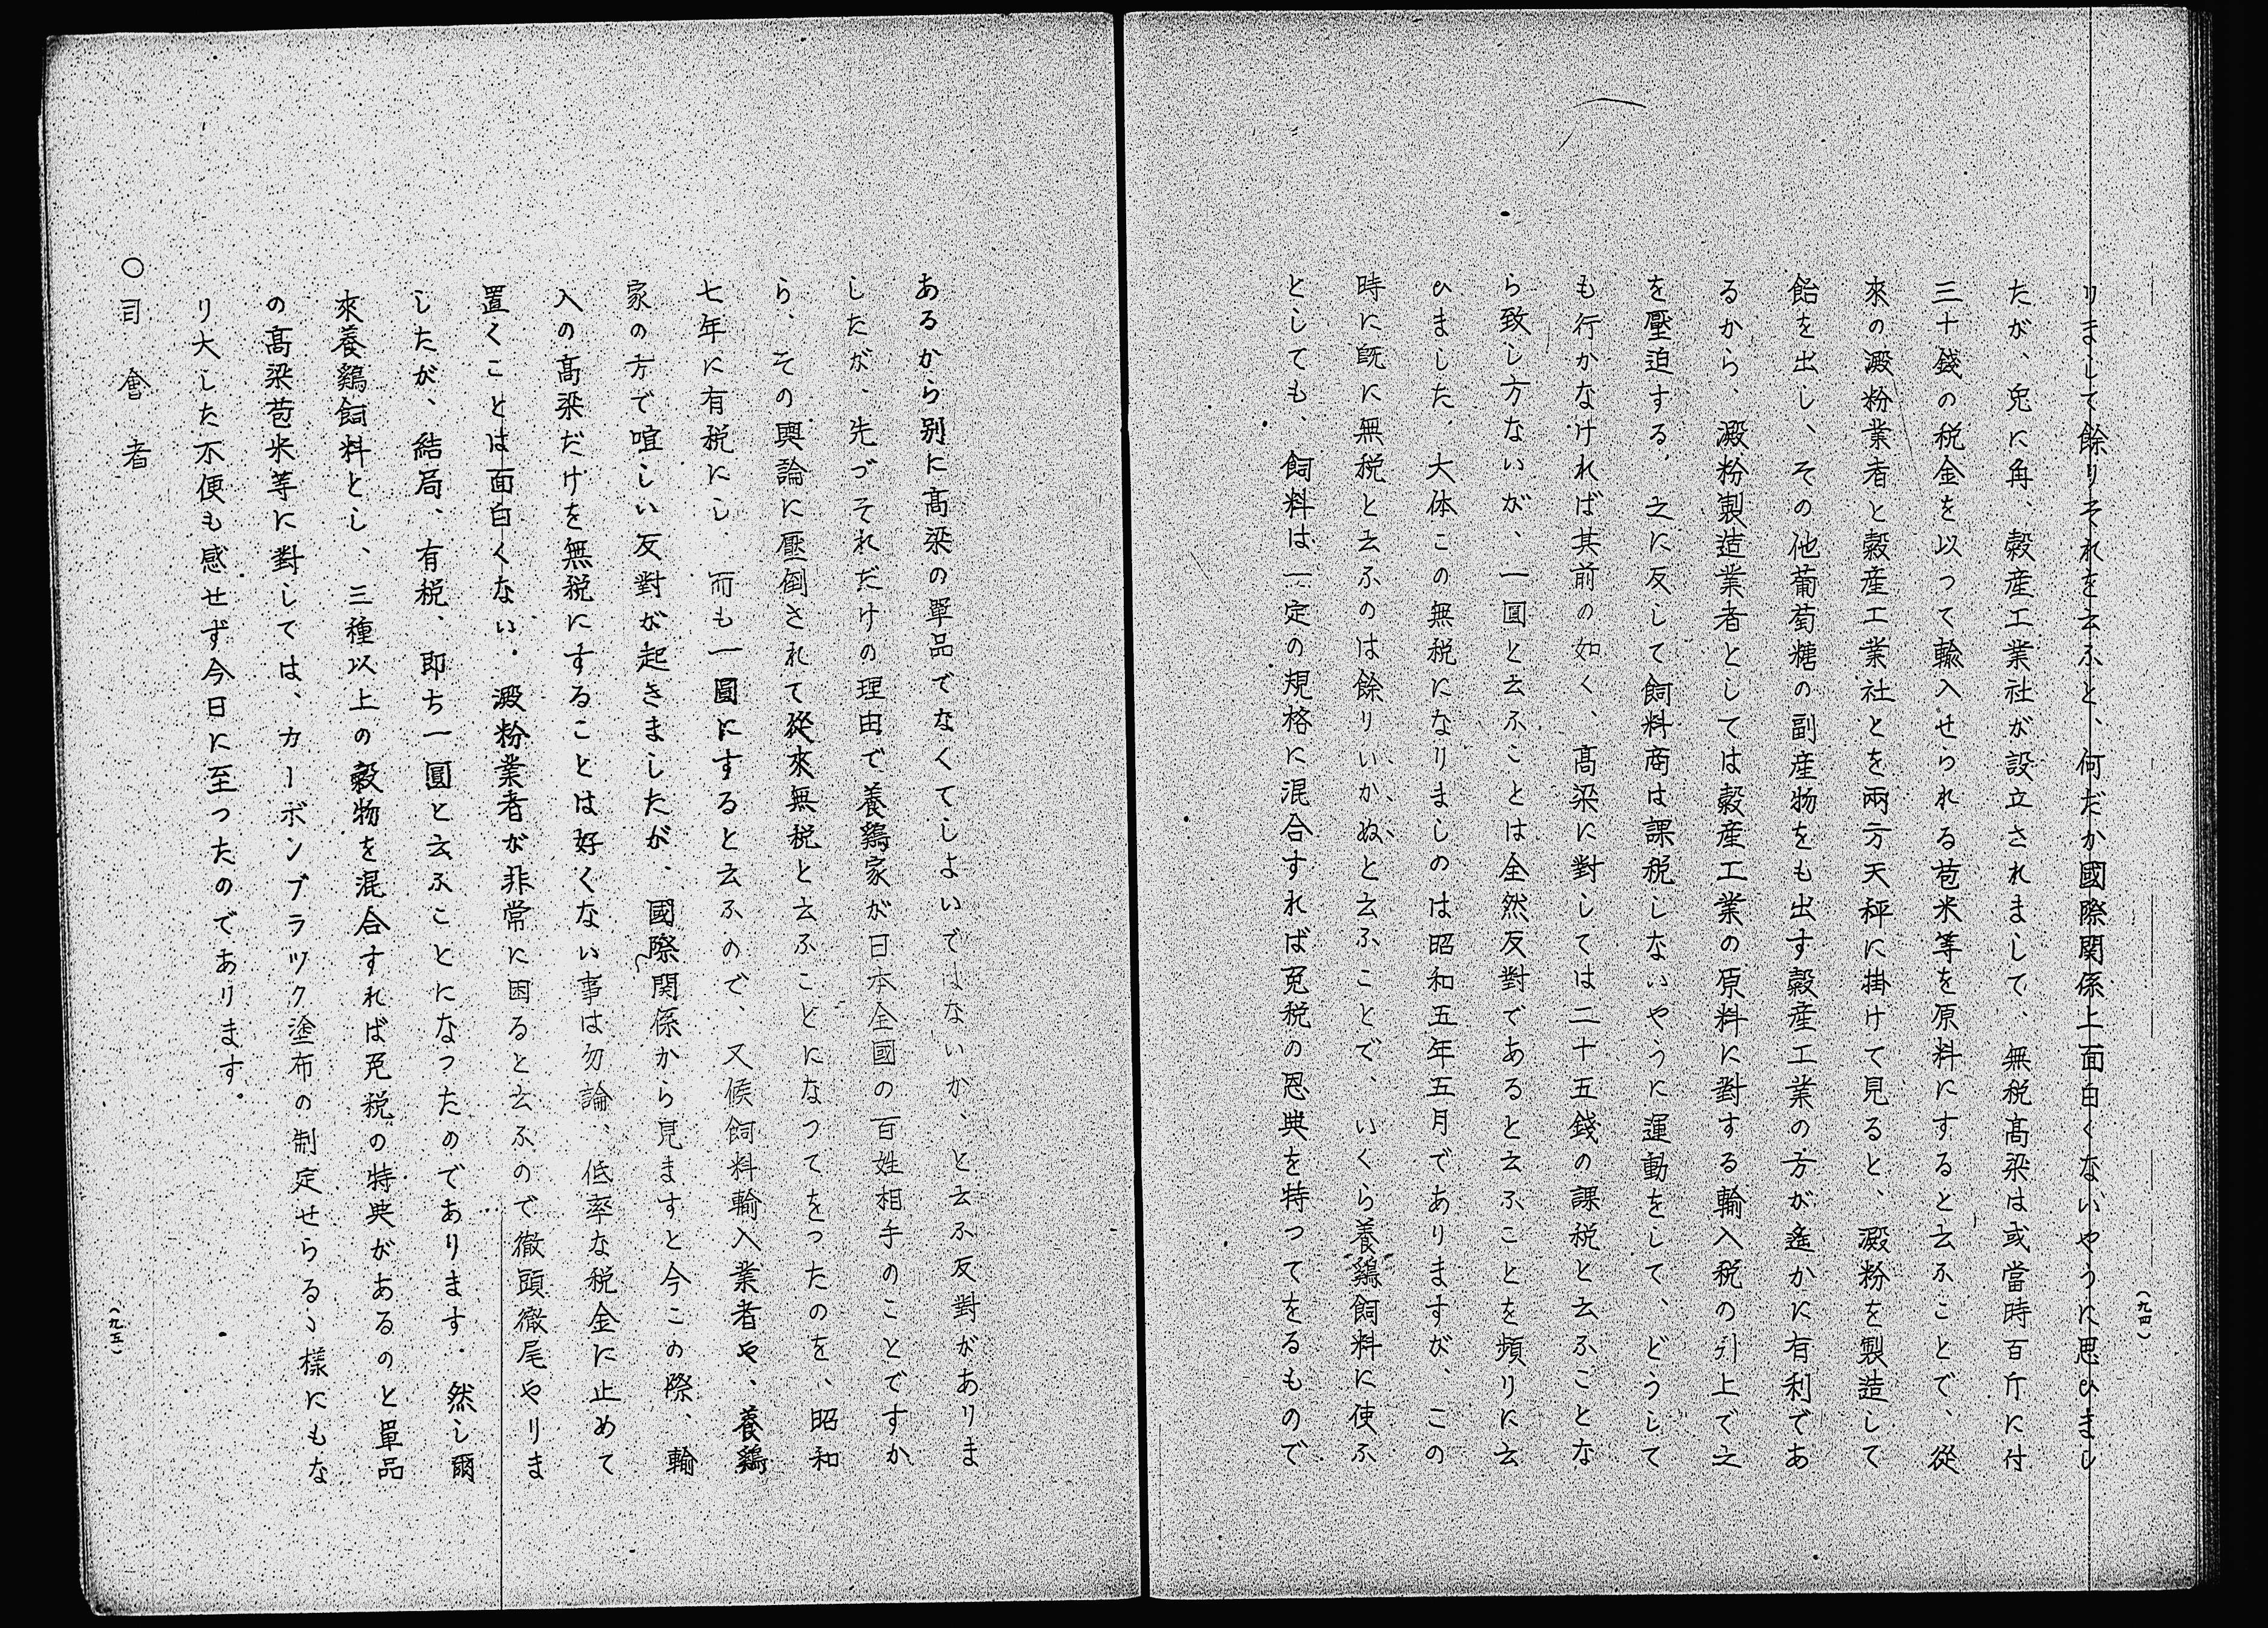 （九四）
りまして餘りそれを云ふと、何だか國際関係上面白くないやうに思ひまし
たが、兎に角、穀産工業社が設立されまして、無税高梁は或當時百斤に付
三十錢の税金を以つて輸入せられる苞米等を原料にすると云ふことで、從
來の澱粉業者と穀産工業社とを兩方天秤に掛けて見ると、澱粉を製造して
飴を出し、その他葡萄糖の副産物をも出す穀産工業の方が遙かに有利であ
るから、澱粉製造業者としては穀産工業の原料に對する輸入税の引上で之
を壓迫する、之に反して飼料商は課税しないやうに運動をして どうして
も行かなければ其前の如く、高梁に對しては二十五錢の課税と云ふことな
ら致し方ないが、一圓と云ふことは全然反對であると云ふことを頻りに云
ひました、大体この無税になりましのは昭和五年五月でありますが、この
時に既に無税と云ふのは餘りいかぬと云ふことで、いくら養鷄飼料に使ふ
としても、飼料は一定の規格に混合すれば免税の恩典を持つてをるもので
あるから別に高梁の單品でなくてしよいではないか、と云ふ反對がありま
したが、先づそれだけの理由で養鷄家が日本全國の百姓相手のことですか
ら、その輿論に壓倒されて從來無税と云ふことになつてをつたのを、昭和
七年に有税にし、而も一圓にすると云ふので、又候飼料輸入業者や、養鷄
家の方で喧しい反對が起きましたが、國際関係から見ますと今この際、輸
入の高梁だけを無税にすることは好くない事は勿論、低率な税金に止めて
置くことは面白くない、澱粉業者が非常に困ると云ふので徹頭徹尾やりま
したが、結局、有税、即ち一圓と云ふことになつたのであります、然し爾
來養鷄飼料とし、三種以上の穀物を混合すれば免税の特典があるのと單品
の高梁苞米等に對しては、カーボンブラツク塗布の制定せらるゝ樣にもな
り大した不便も感せず今日に至つたのであります。
○司會者
（九五）